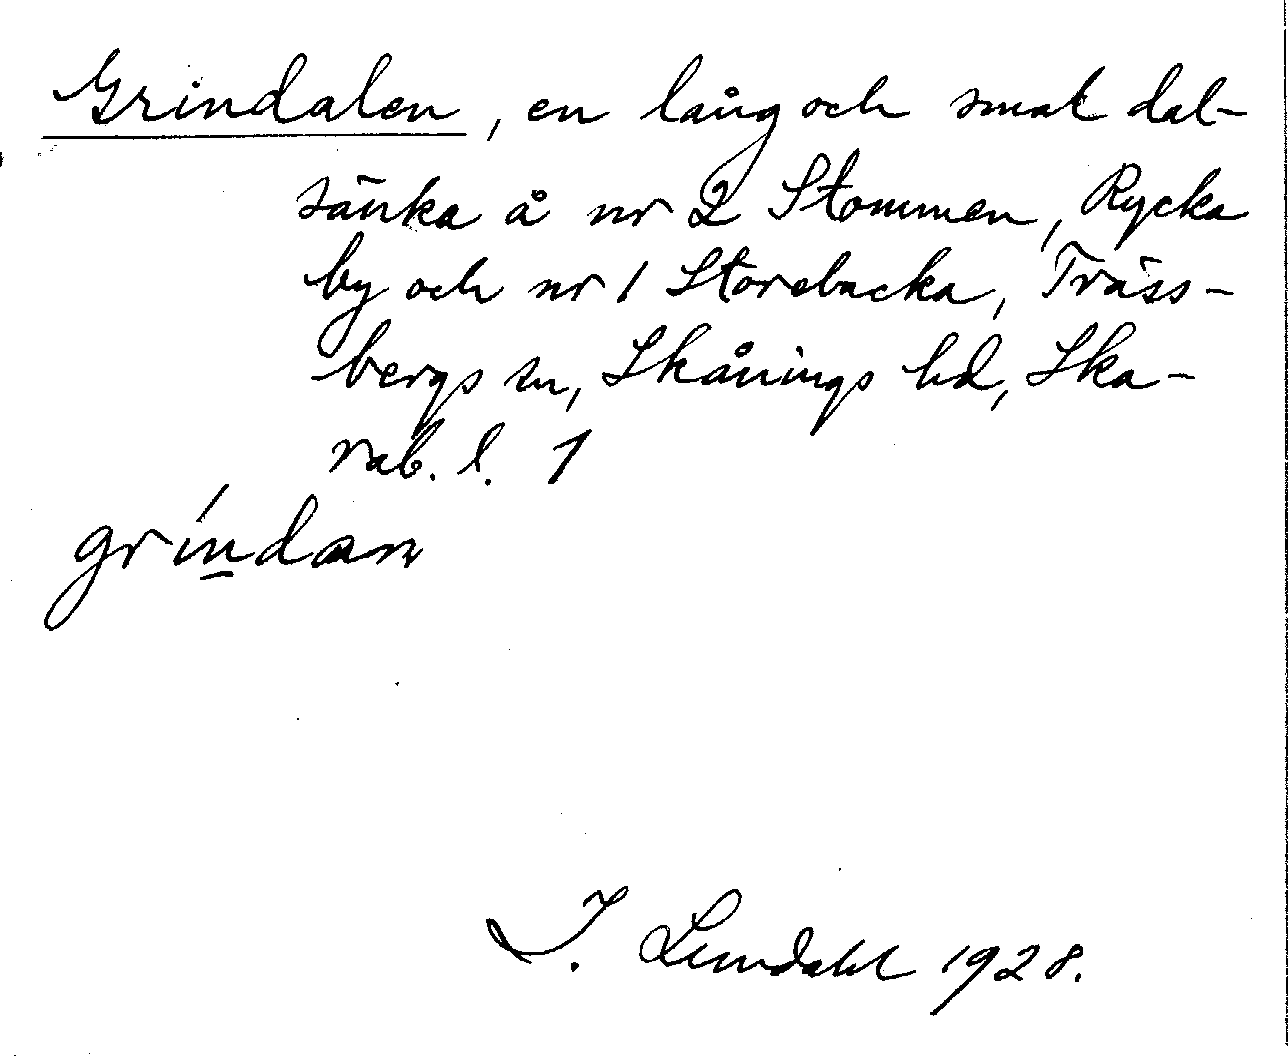 Grindalen, en lång och smal dal-
sänka å nr 2 Stommen, Rycka
by och nr 1 Storebacka, Träss-
bergs sn, Skånings hd, Ska-
rab. l. 1
gríndan
I. Lundahl 1928.